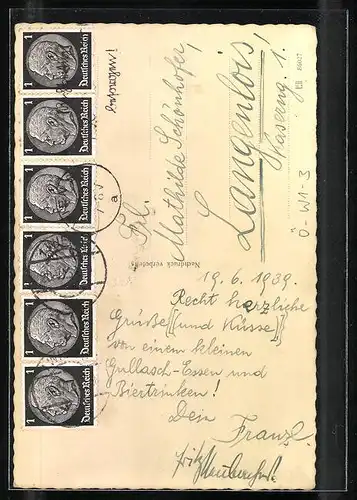 1 Deutsches Reich
1 Deutsches Reich
1 Deutsches Reich
1 Deutsches Reich
1 Deutsches Reich
1 Deutsches Reich
a
Frl.
Mathilde Schönhofer,
Langenlois,
1.
Ö-W1-3
Nachdruck verboten
19.6.1939.
Recht herzliche
Grüße [(und Küsse)]
von einem kleinen
Gullasch-Essen und
Biertrinken!
Dein
Franzl.